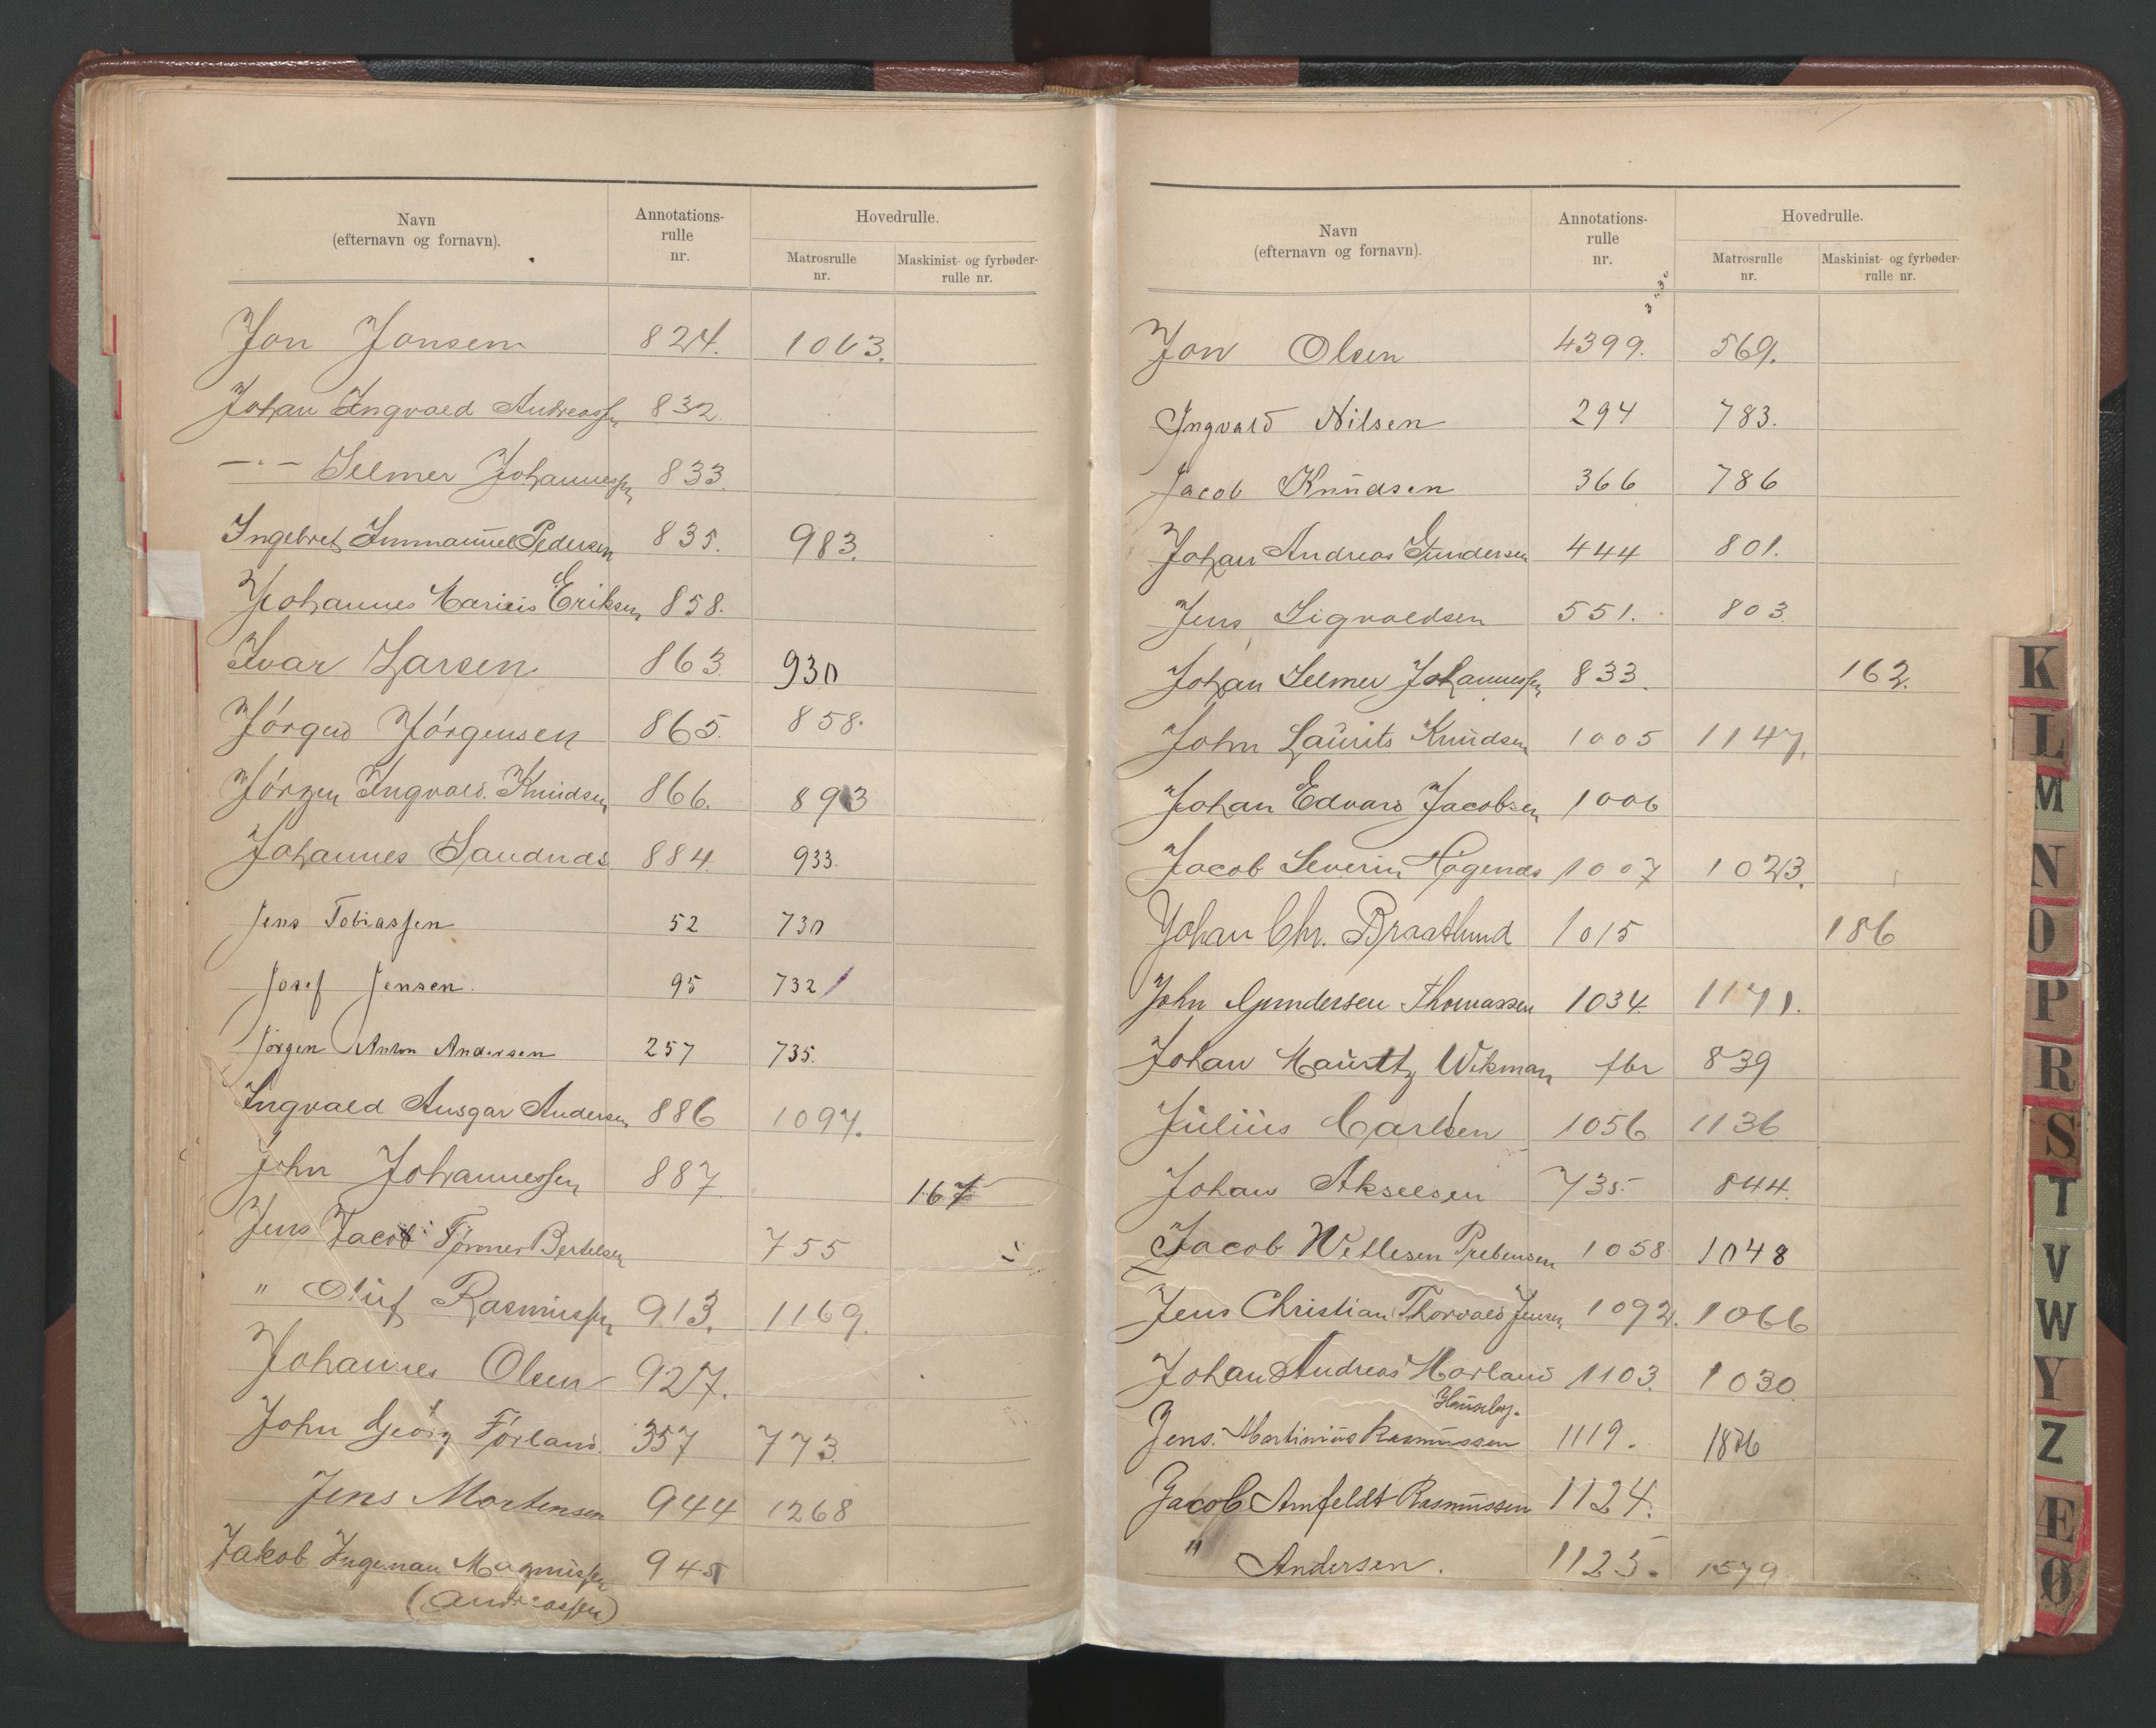 Navn
(efternavn og fornavn).
Annotations-
rulle
nr.
Hovedrulle.
Matrosrulle
nr.
Maskinist- og fyrbøder-
rulle nr.
Jon Jonsen 824. 1003.
Johan Ingvald Andreassen 832.
—〃— Selmer Johannessen 833.
Ingebret Immanuel Pedersen 835. 983.
Johannes Marius Eriksen 858.
Ivar Larsen 863. 930
Jørgen Jørgensen 865. 858.
Jørgen Ingvald Knudsen 866. 893
Johannes Sandnes 884. 933.
Jens Tobiassen 52 730
Josef Jensen. 95 732
Jørgen Anton Andersen 257 735.
Ingvald Ansgar Andersen 886 1097.
John Johannessen 887. 167
Jens Jacob Tønnes Bertelsen 755
" Oluf Rasmussen 913. 1169.
Johannes Olsen 927.
John Georg Førland. 357 773.
Jens Mortensen 944 1268
Jakob Ingeman Magnussen 945
(Andreassen)
Navn
(efternavn og fornavn).
Annotations-
rulle
nr.
Hovedrulle.
Matrosrulle
nr.
Maskinist- og fyrbøder-
rulle nr.
Jon Olsen 4399. 569.
Ingvald Nilsen 294 783.
Jacob Knudsen 366 786
Johan Andreas Gundersen 444 801.
Jens Sigvaldsen 551. 803
Johan Selmer Johannessen 833. 162.
John Laurits Knudsen 1005 1147.
Johan Edvard Jacobsen 1006
Jacob Severin Høgenes 1007 1023.
Johan Chr. Braatlund 1015 186
John Gundersen Thomassen 1034. 1171.
Johan Mauritz Wikman fbr 839
Julius Carlsen 1056 1136
Johan Akselsen 735. 844.
Jacob Wetlesen Prebensen 1058 1048
Jens Christian Thorvald Jensen 1092. 1066
Johan Andreas Morland 1103. 1030.
Jens. Martinius Rasmussen 1119.
Jacob Arnfeldt Rasmussen 1124.
" Andersen. 1125. 1579
K
L
M
N
O
P
R
S
T
V
W
Y
Z
Æ
Ø